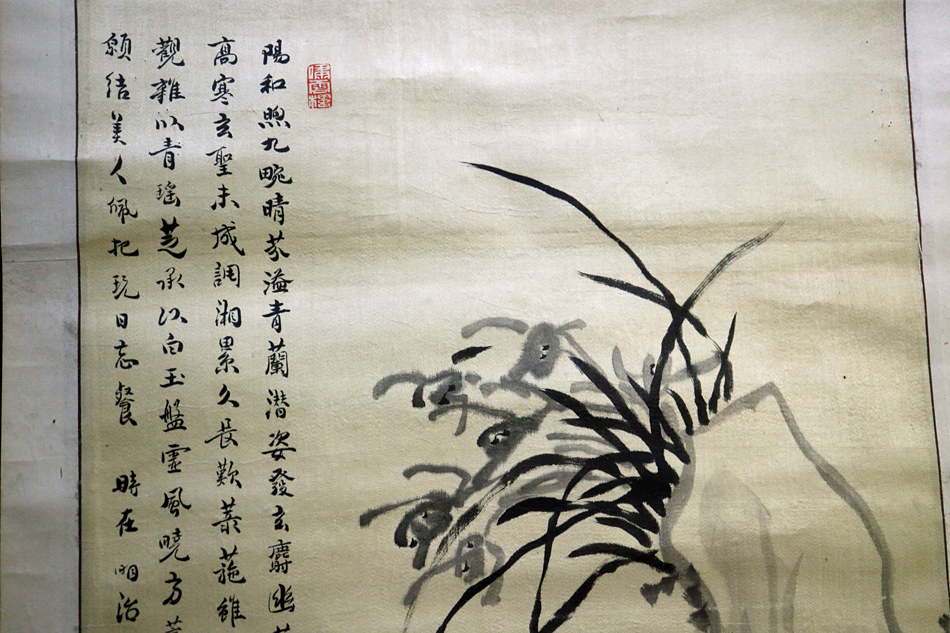 陽和煦九畹晴芬溢青蘭潛姿發玄麝幽
高寒玄聖未成調湘纍久長歎菉葹雖
觀雜以青瑤芝承以白玉盤靈風曉方
願結美人佩把玩日忘餐 時在 明治